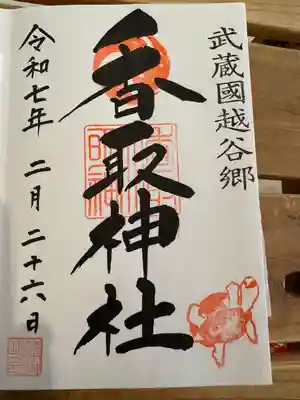 武蔵國越谷郷
香取神社
令和七年 二月 二十六日